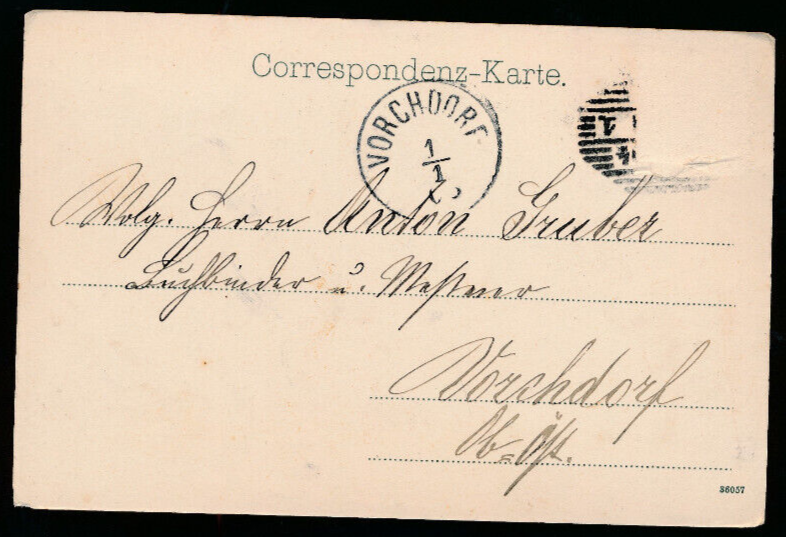 Correspondenz-Karte.
VORCHDORF
1/1
Wolg. Herrn Anton Gruber
Buchbinder u. Meßner
Vorchdorf
Ob-Öst.
36057